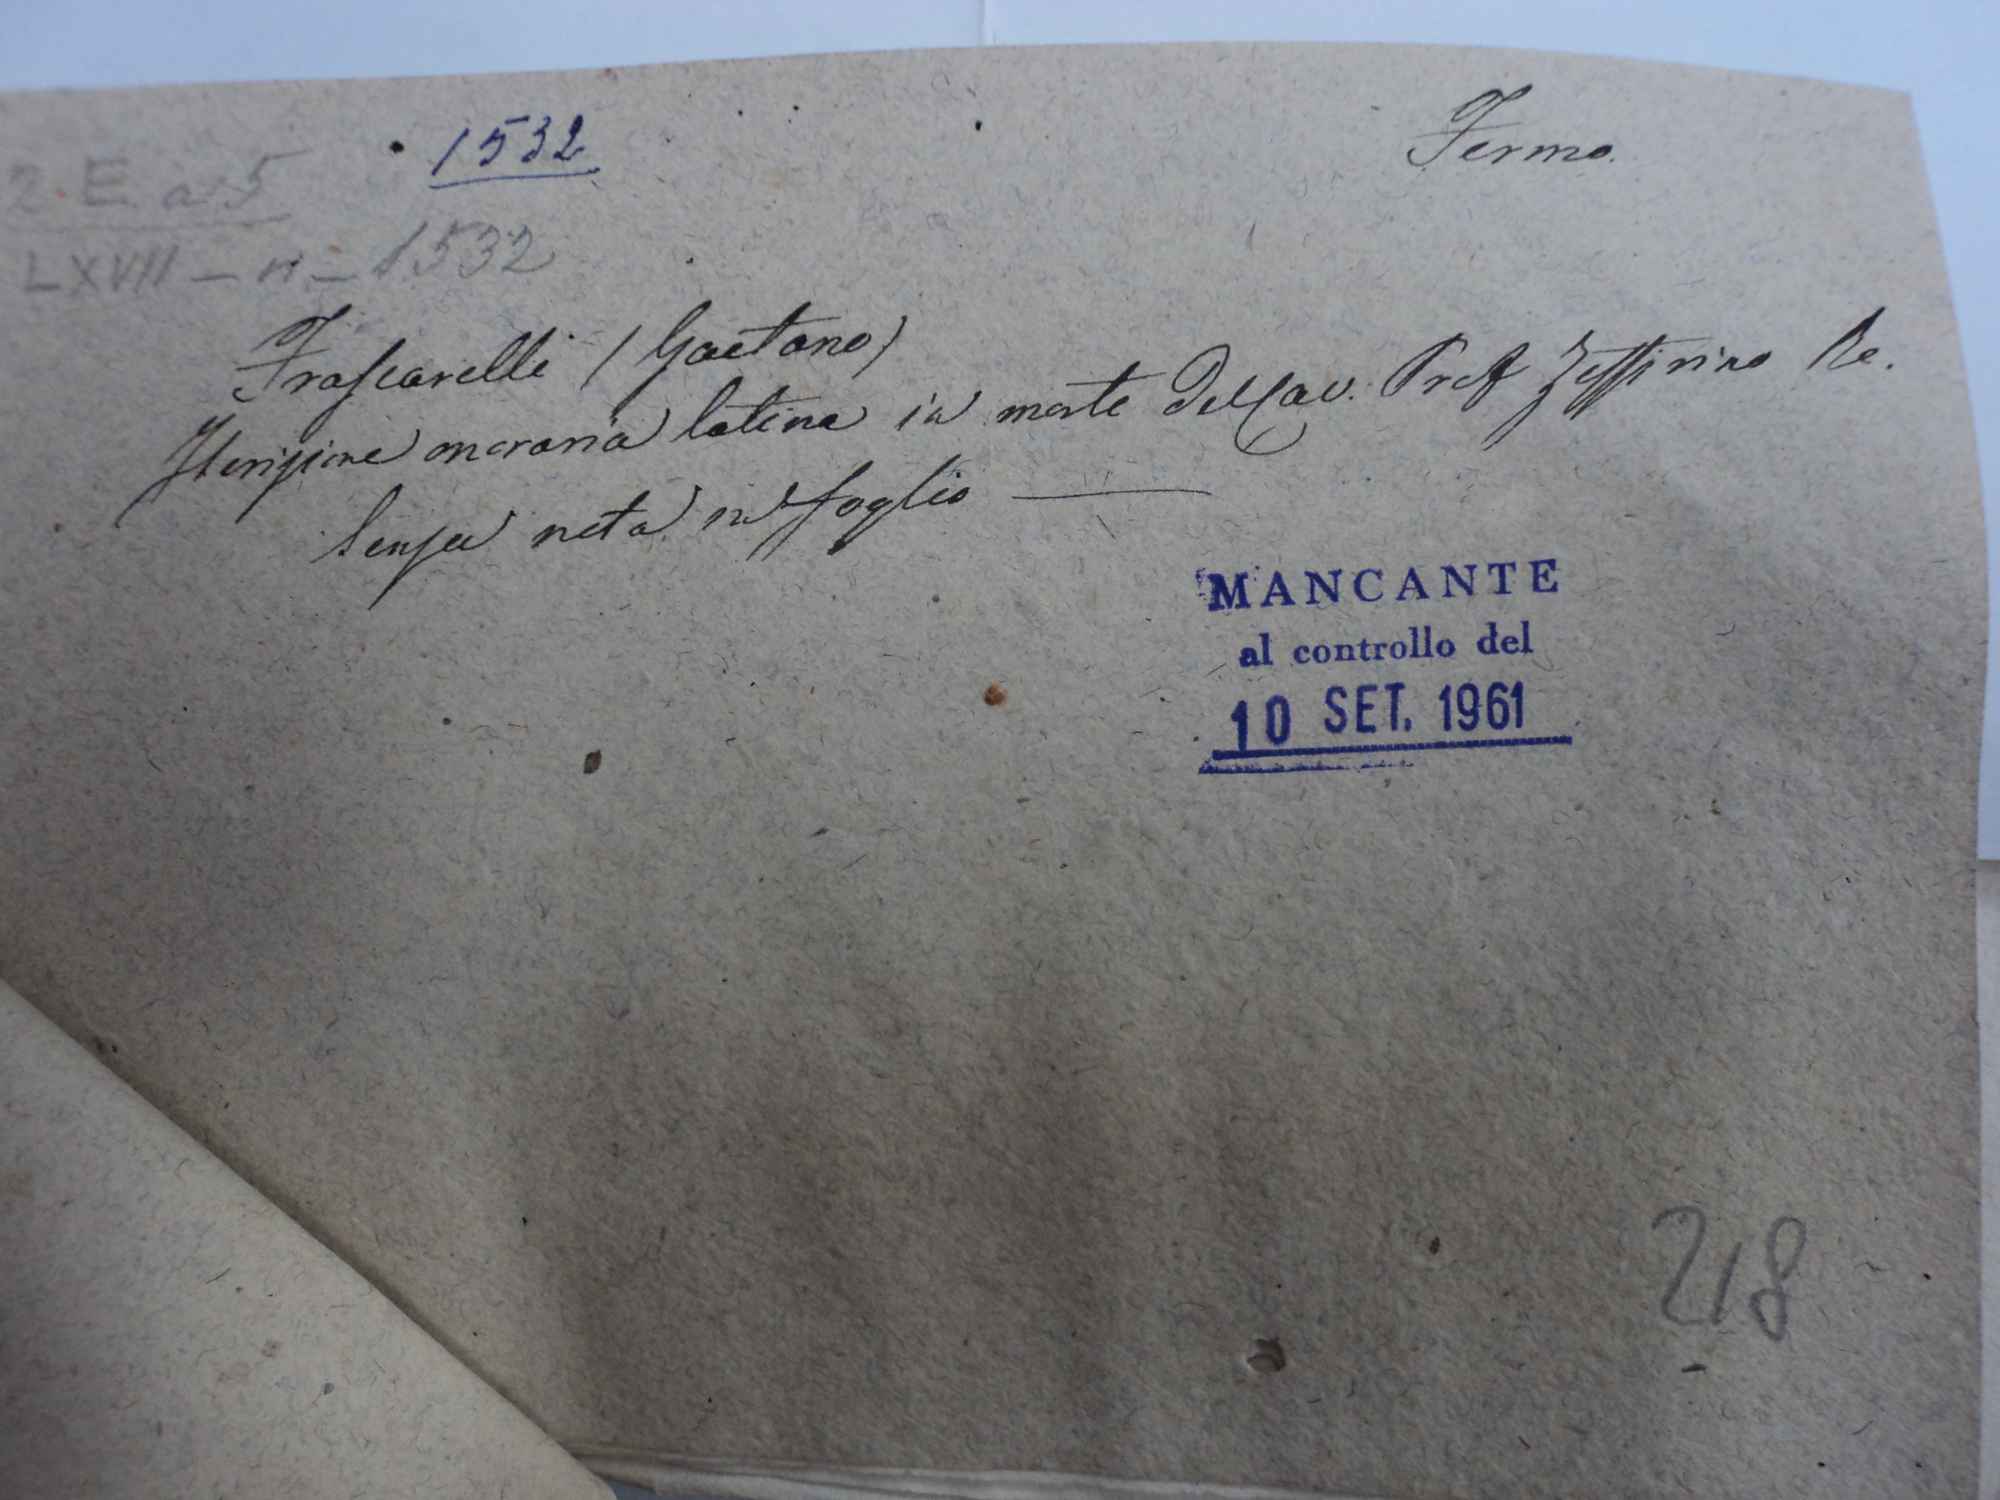 1532
Fermo.
2 E. a. 5
LXVII – n – 1532
Frascarelli (Gaetano)
Iscrizione onoraria latina in morte del Cav. Prof Zeffirino Re.
Senza nota in foglio —
MANCANTE
al controllo del
10 SET. 1961
218